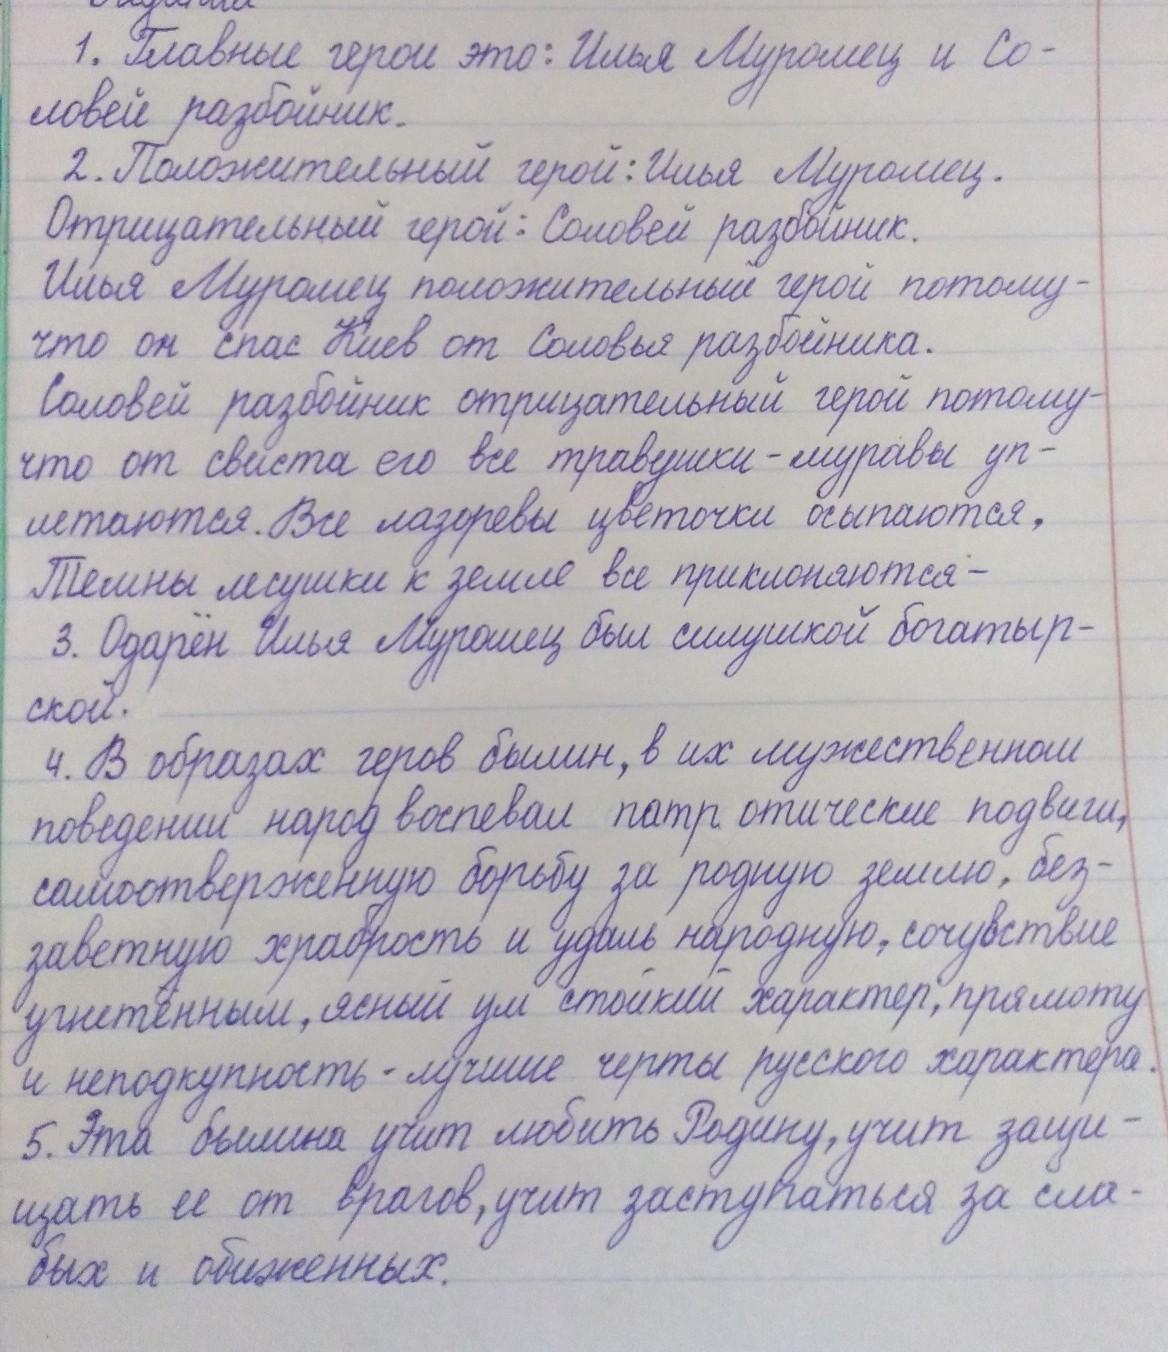 1. Главные герои это: Илья Муромец и Со-
ловей разбойник.
2. Положительный герой: Илья Муромец.
Отрицательный герой: Соловей разбойник.
Илья Муромец положительный герой потому-
что он спас Киев от Соловья разбойника.
Соловей разбойник отрицательный герой потому-
что от свиста его все травушки-муравы уп-
летаются. Все лазоревы цветочки осыпаются,
Темны лесушки к земле все приклоняются-
3. Одарён Илья Муромец был силушкой богатыр-
ской.
4. В образах геров былин, в их мужественном
поведении народ воспевал патр отические подвиги,
самоотверженную борьбу за родную землю, без-
заветную храбрость и удаль народную, сочувствие
угнетённым, ясный ум стойкий характер, прямоту
и неподкупность - лучшие черты русского характера.
5. Эта былина учит любить Родину, учит защи-
щать ее от врагов, учит заступаться за сла-
бых и обиженных.